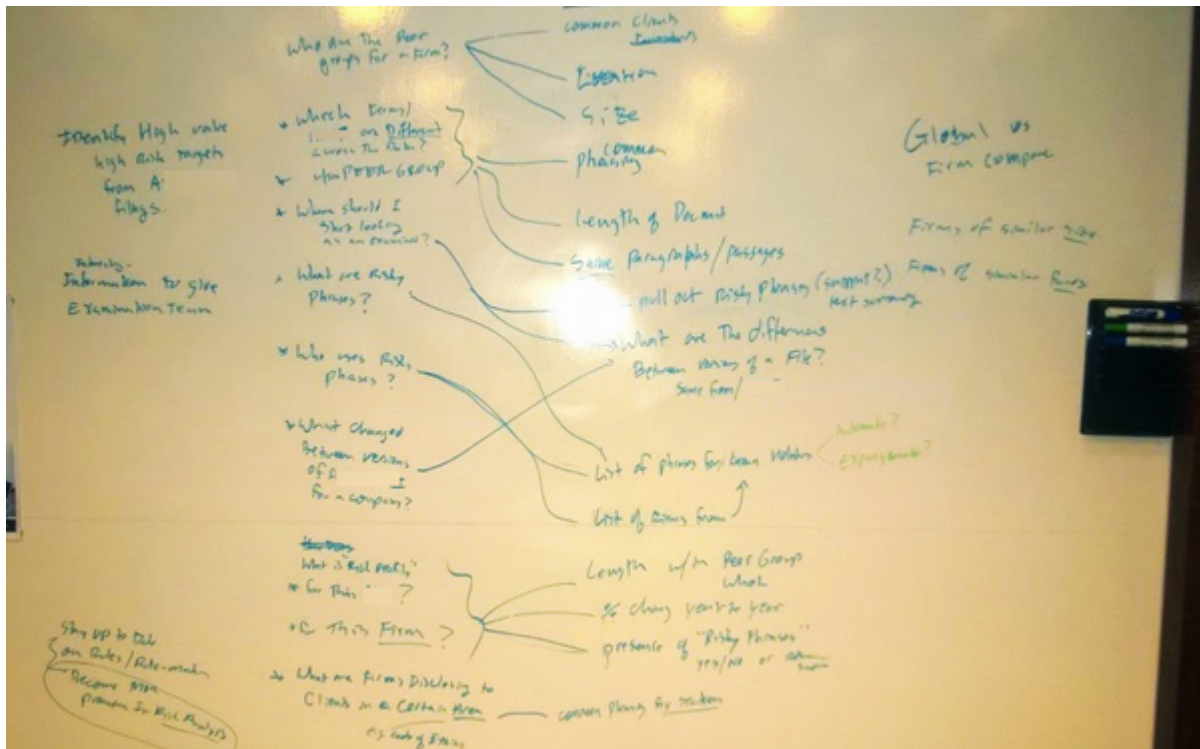 Identify High value
high Risk targets
from A
filings
Identify
Information to give
Examination Team
Stay up to Date
on Rules/Rule-
Become More
In Risk Analysis
Who are The Peer
groups for a firm?
* Which Firms/
are Different
across The Risks?
* w/in PEER GROUP
* When should I
start looking
as an examiner?
* What are Risky
Phrases?
* Who uses Risky
phrases?
* What changed
Between versions
of
for a company?
What is "Risk Profile"
* for this ?
* This Firm?
* What are Firms Disclosing to
Clients in a Certain Area
e.g. code of Ethics
common clients
Investors
Location
Size
common
phrasing
Length of Document
Same paragraphs/passages
pull out Risky phrases (support?)
text summary
What are The differences
Between versions of a File?
same firm/
List of phrases
List of firms from
Length w/in Peer Group
% chang year to year
presence of "Risky Phrases"
yes/no or
common phrasing by section
Automatic?
Global vs
Firm compare
Firms of similar size
Firms of similar Funds